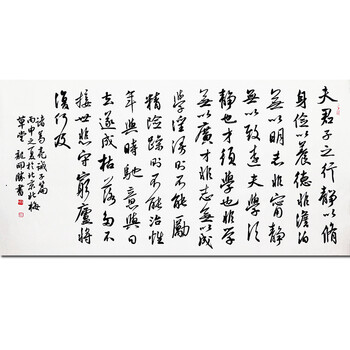 夫君子之行静以脩
身儉以養德非澹泊
無以明志非甯静
無以致遠夫學須
静也才須學也非學
無以廣才非志無以成
學淫漫則不能勵
精險躁則不能治性
年與時馳意與日
去遂成枯落多不
接世悲守窮廬將
復何及
諸葛亮誡子篇
丙申之夏於北京北梅
草堂龍開勝書